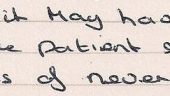 it May hav
e patient s
s of never